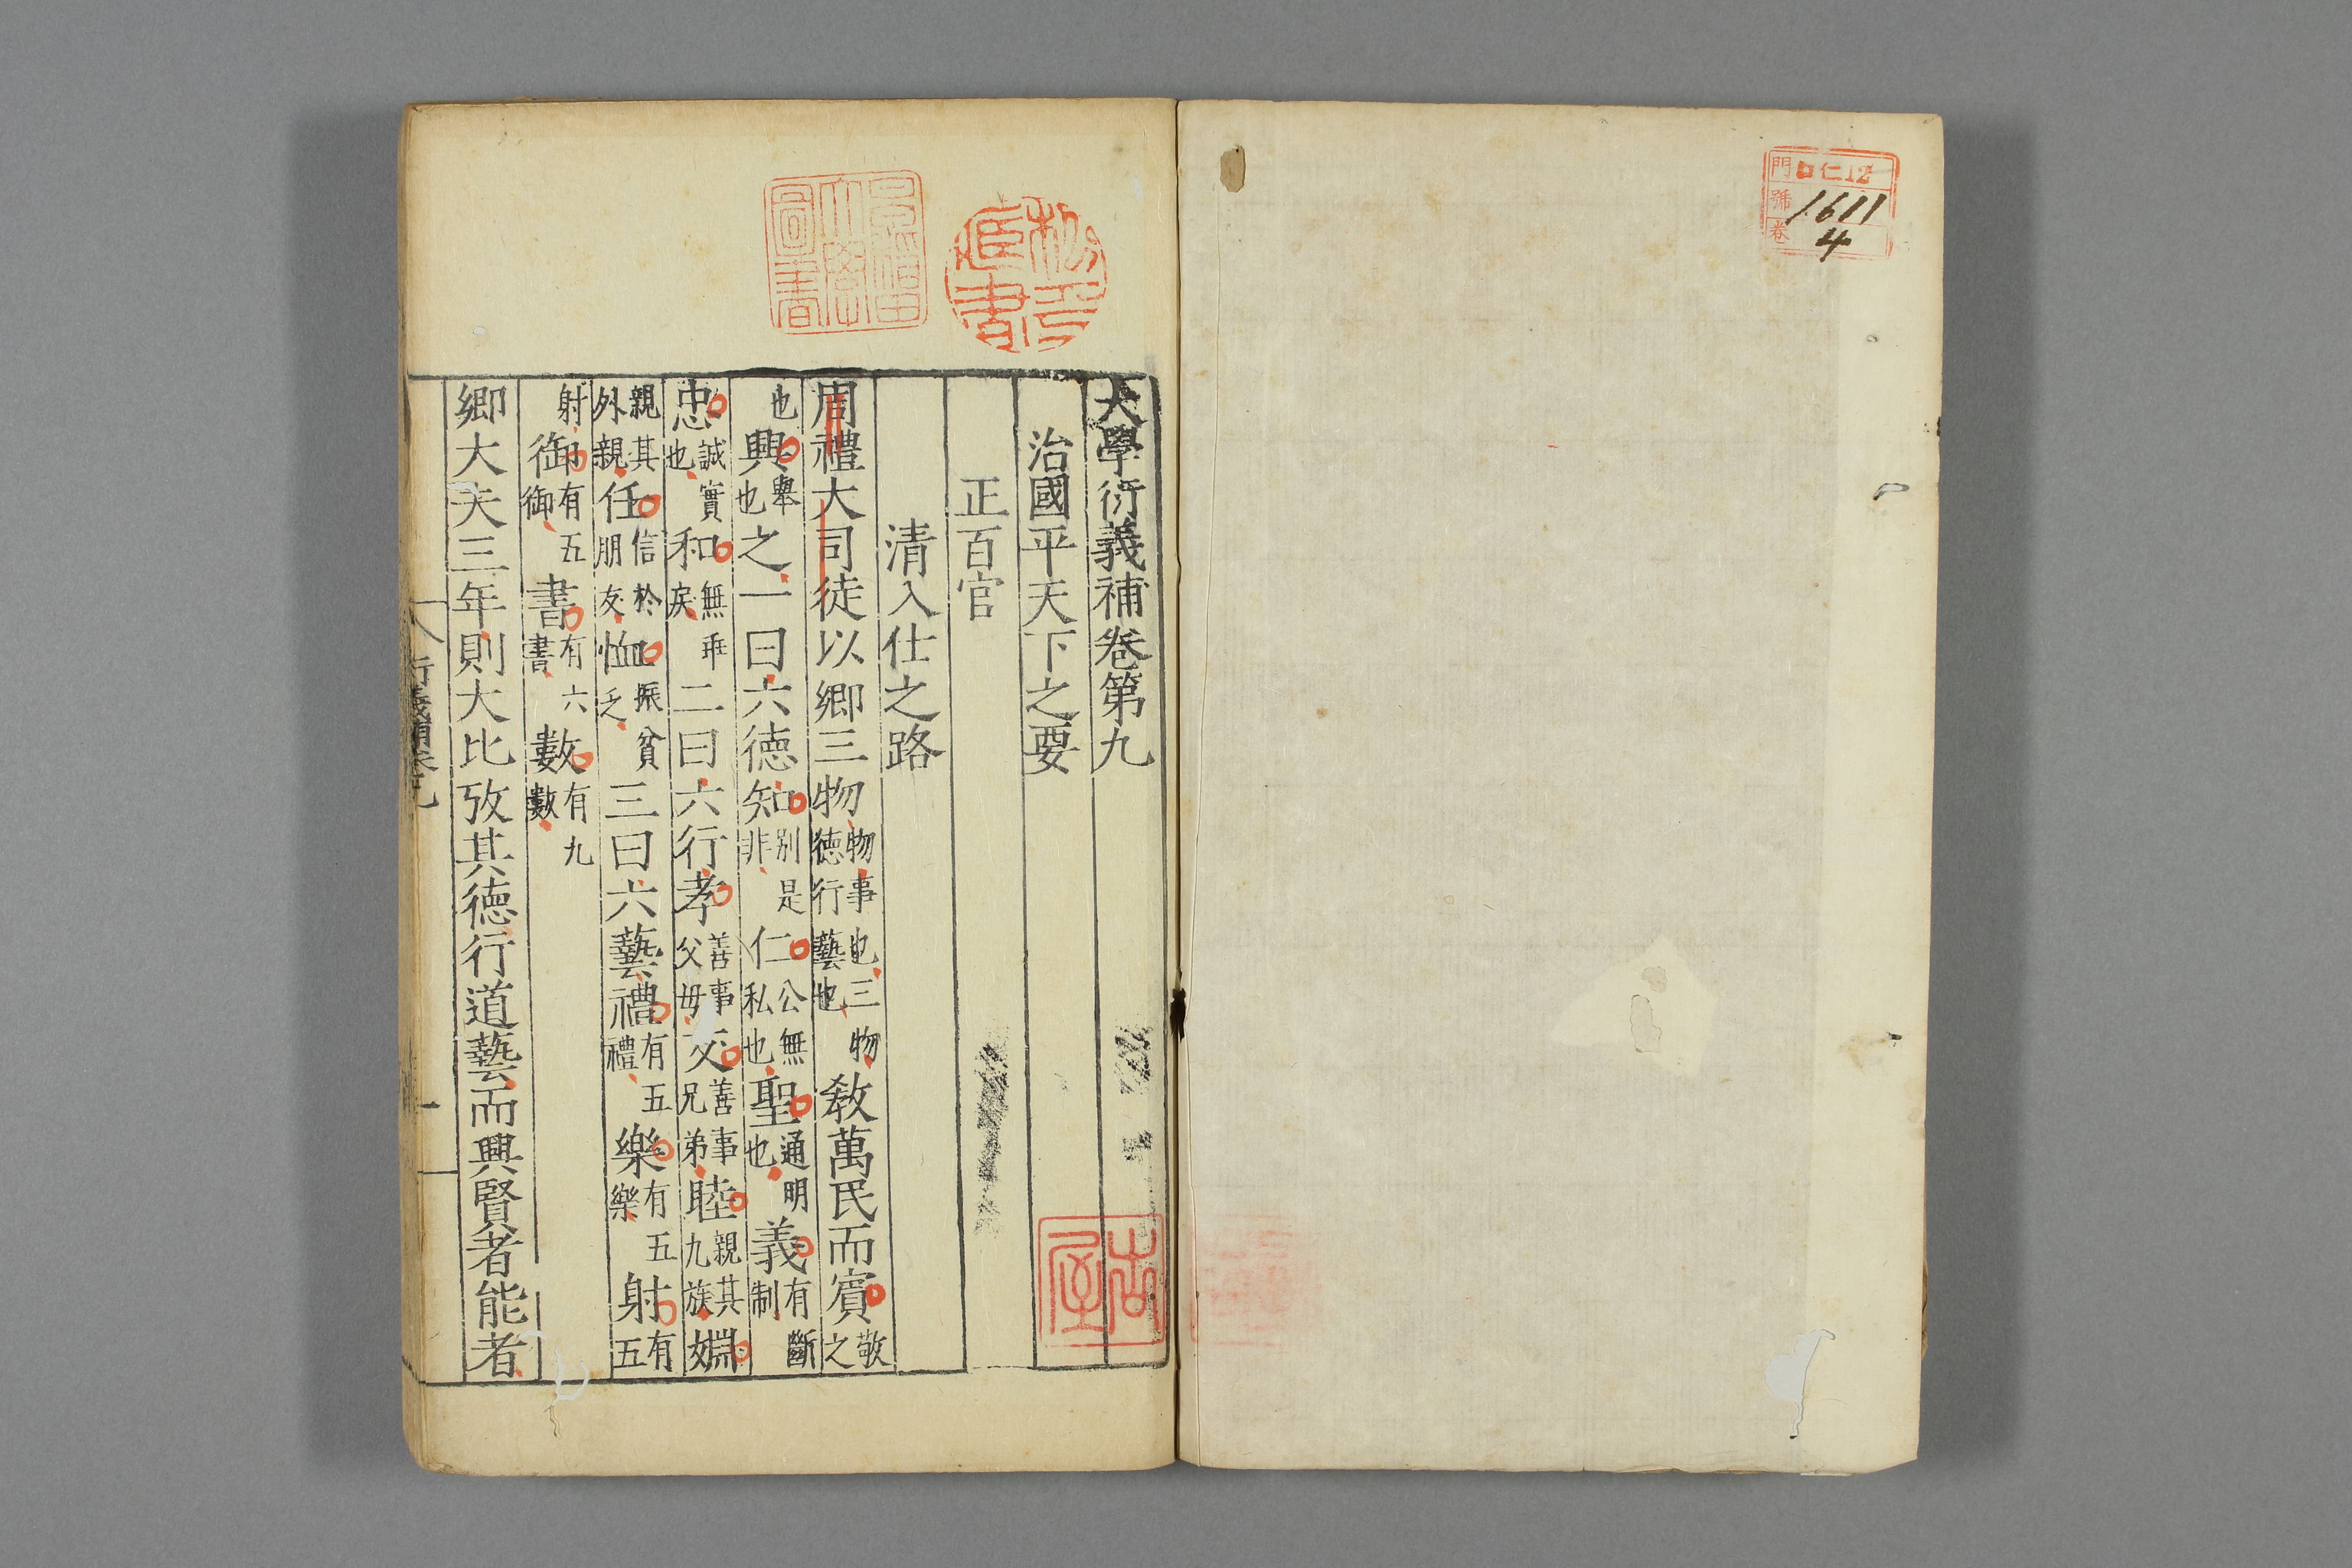 門 口仁12
號 1611
卷 4
大學衍義補卷第九
治國平天下之要
正百官
清入仕之路
周禮大司徒以鄉三物物事也三物德行藝也教萬民而賓敬之
也興舉也之一曰六德知別是非仁公無私也聖通明也義有斷制
忠誠實也和無乖戾二曰六行孝善事父母友善事兄弟睦親其九族婣
親其外親任信於朋友恤振貧乏三曰六藝禮有五禮樂有五樂射有五
射御有五御書有六書數有九數
鄉大夫三年則大比攷其德行道藝而興賢者能者
衍義補卷九
一